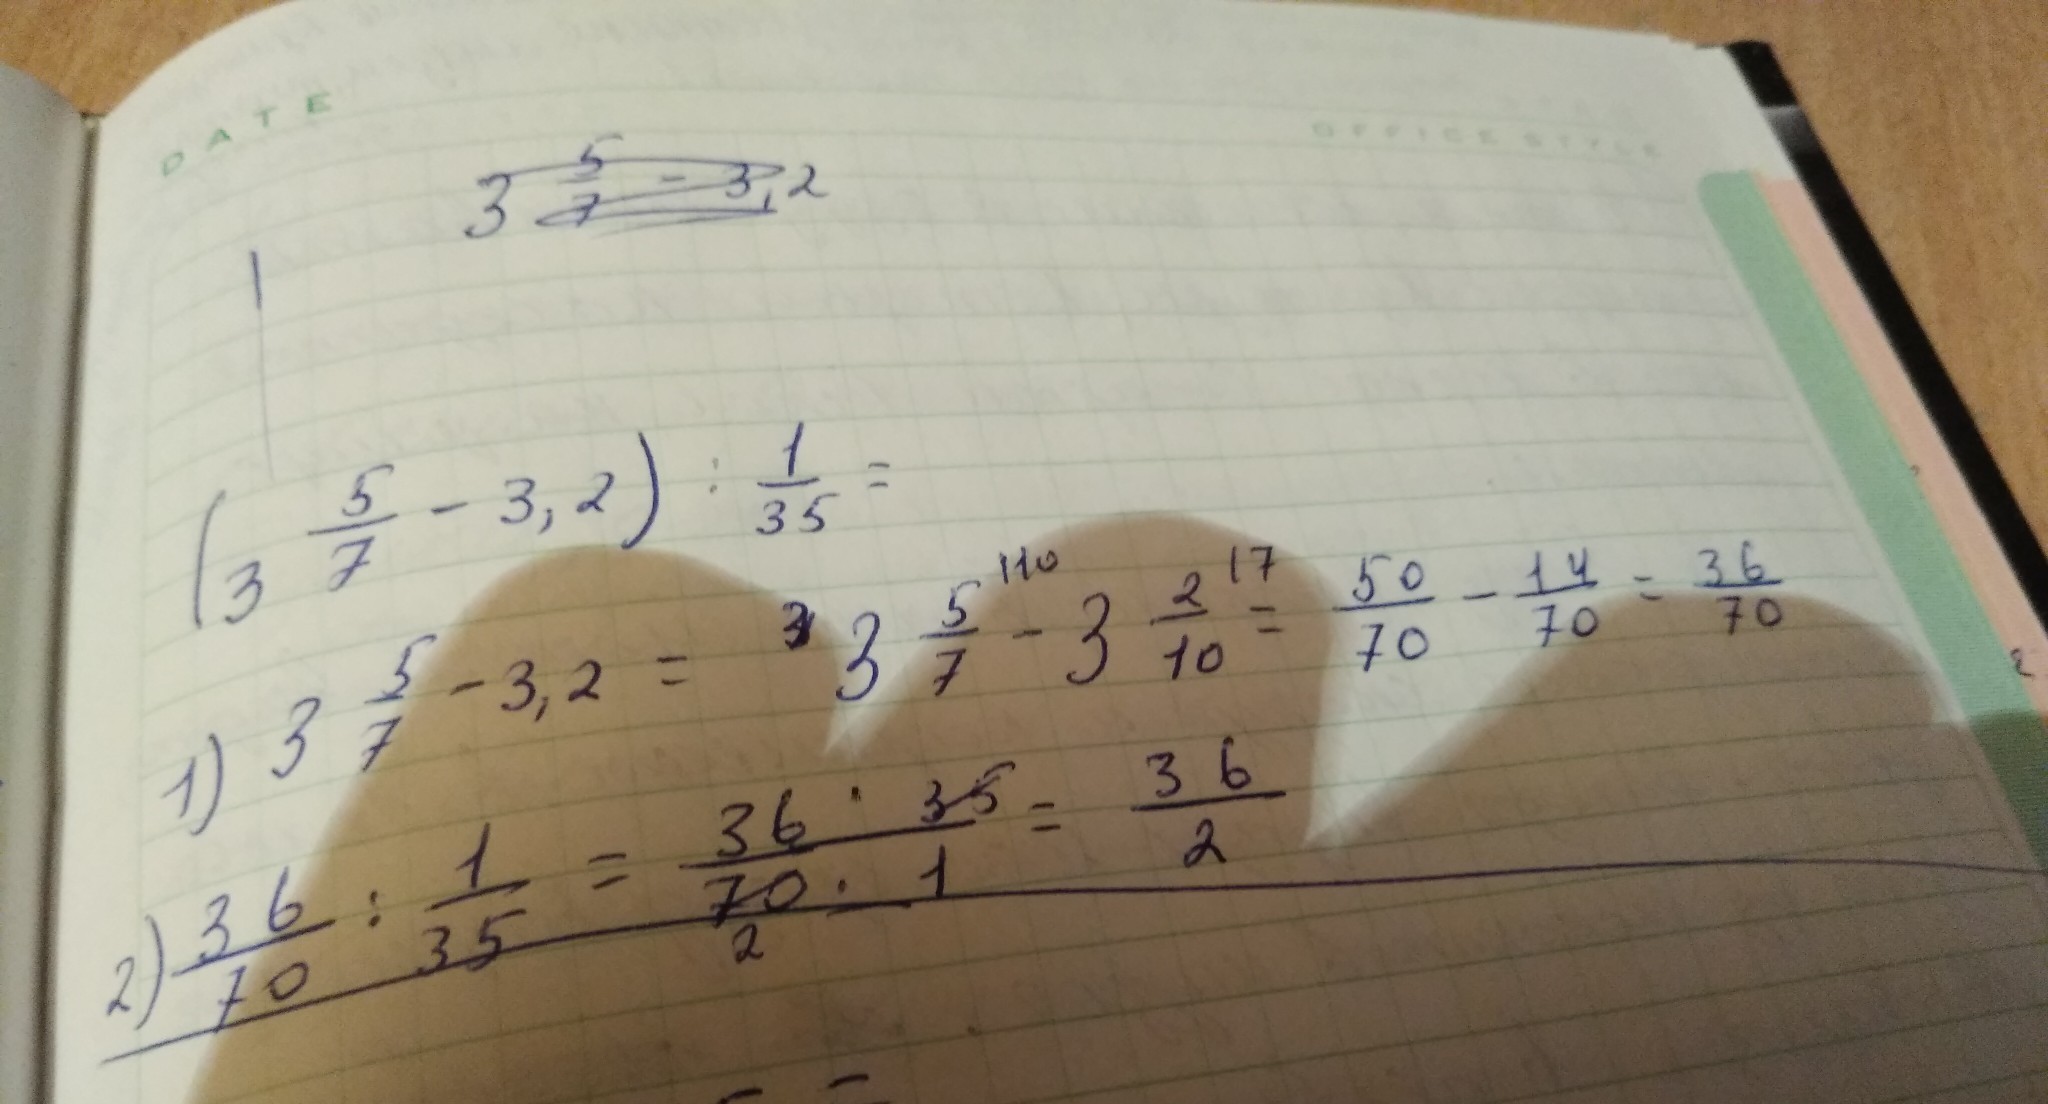 DATE
OFFICE STYLE
3 5/7 - 3,2
(3 5/7 - 3,2) : 1/35 =
1) 3 5/7 - 3,2 = 3 5/7 |10 - 3 2/10 |7 = 50/70 - 14/70 = 36/70
2) 36/70 : 1/35 = 36 · 35 / 70 · 1 = 36/2
2